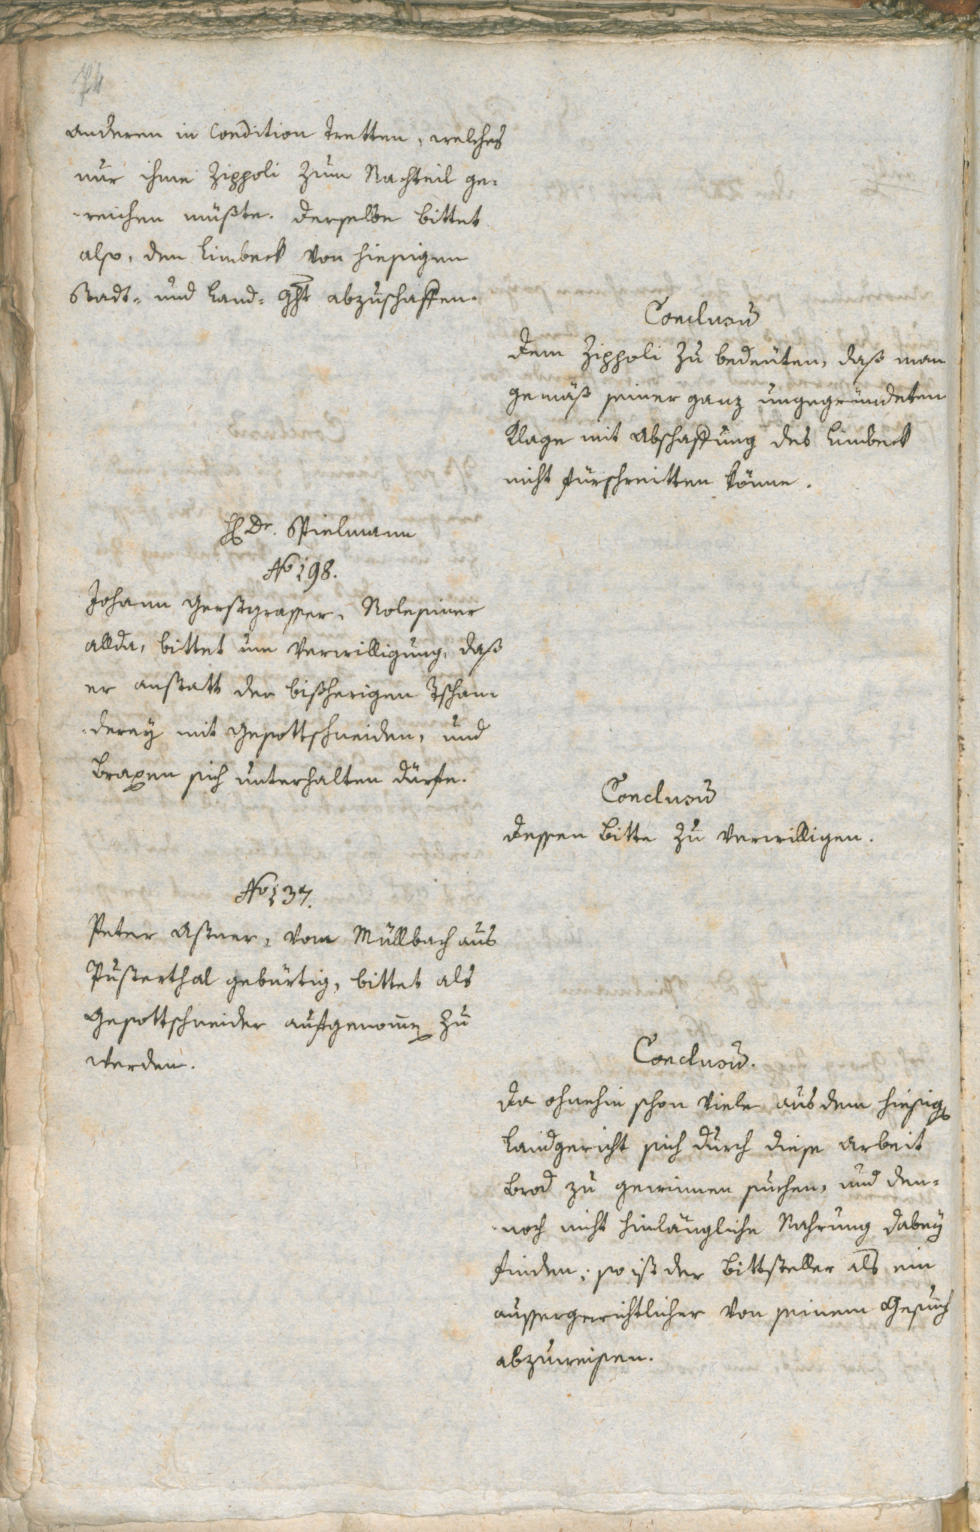 74
anderen in Condition tretten, welches
nur ihme Zippoli zum Nachteil ge-
-reichen müßte. Derselbe bittet
also, den Limbeck von hiesigen
Stadt- und Land- ght abzuschaffen.
Conclusū
Dem Zippoli zu bedeuten, daß man
gemäß seiner ganz ungegründeten
Klage mit Abschaffung des Limbeck
nicht fürschreitten könne.
H Dr. Spielmann
No 198.
Johann Gerstgrasser,
allda, bittet um Verwilligung, daß
er anstatt der bißherigen Tschan-
-derey mit Gesottschneiden, und
Braxen sich unterhalten dürfe.
Conclusū
Dessen Bitte zu verwilligen.
No 137.
Peter Astner, vom Müllbach aus
Pusterthal gebürtig, bittet als
Gesottschneider aufgenom̄en zu
werden.
Conclusū.
Da ohnehin schon viele aus dem hiesigen
Landgericht sich durch diese Arbeit
Brod zu gewinnen suchen, und den-
-noch nicht hinlängliche Nahrung dabey
finden; so ist der Bittsteller als ein
aussergerichtlicher von seinem Gesuch
abzuweisen.